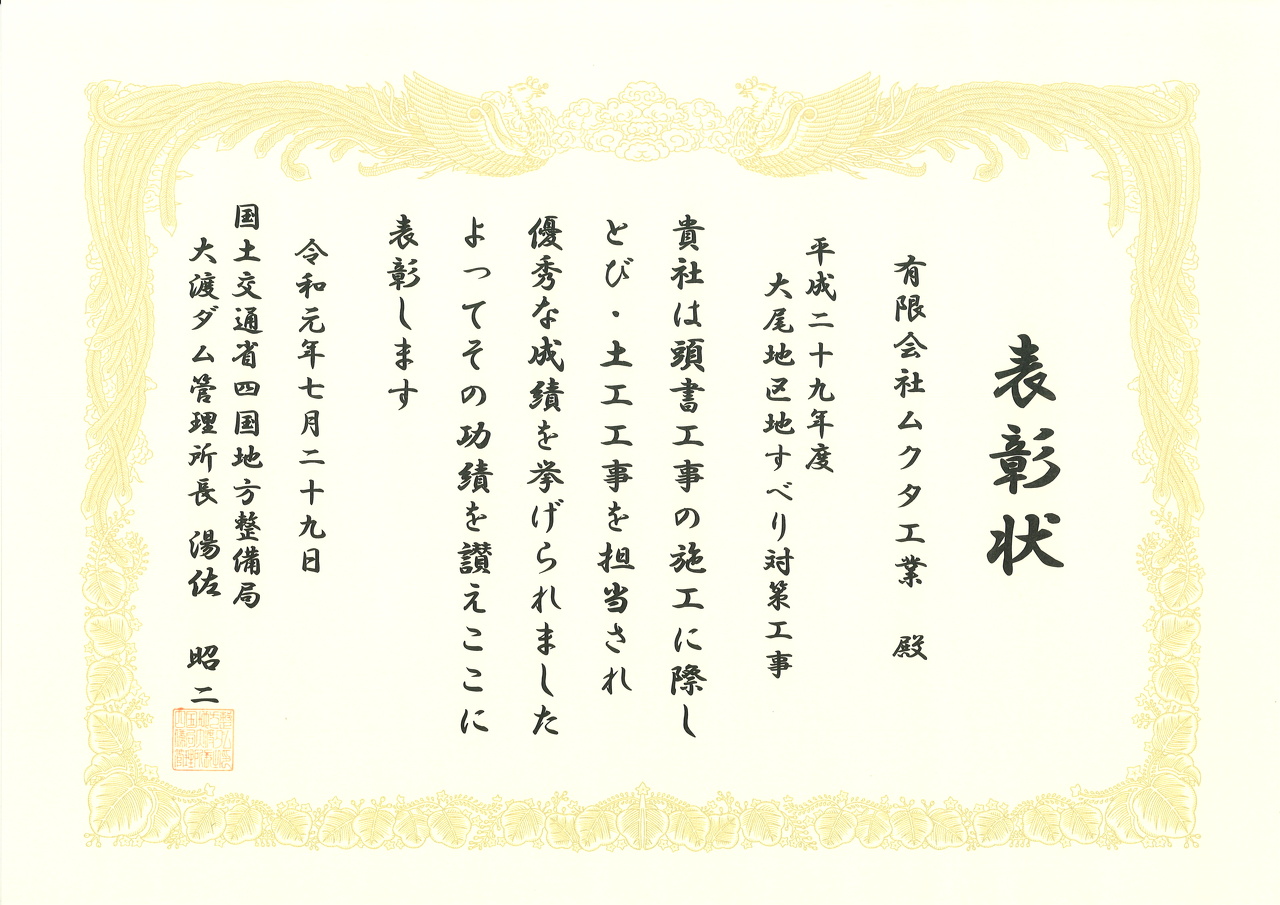 表彰状
有限会社ムクタ工業　殿
平成二十九年度
大尾地区地すべり対策工事
貴社は頭書工事の施工に際し
とび・土工工事を担当され
優秀な成績を挙げられました
よってその功績を讃えここに
表彰します
令和元年七月二十九日
国土交通省四国地方整備局
大渡ダム管理所長　湯佐　昭二